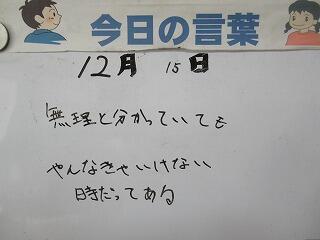 今日の言葉
12月 15日
無理と分かっていても
やんなきゃいけない
時だってある